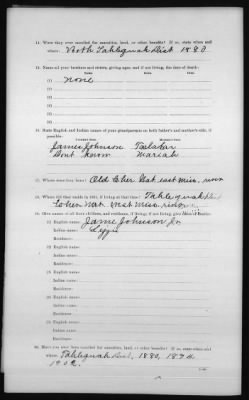 14. Were they ever enrolled for annuities, land, or other benefits? If so, state when and
where: Both Tahlequah Dist 1880
15. Name all your brothers and sisters, giving ages, and if not living, the date of death:
(1) none
(2)
(3)
(4)
(5)
(6)
16. State English and Indian names of your grandparents on both father's and mother's side, if
possible:
James Johnson
Dont know Mariah
17. Where were they born? Old Cher Nat east Miss. river
18. Where did they reside in 1851, if living at that time? Tahlequah Dist
Cher Nat west Miss. river
19. Give names of all their children, and residence, if living; if not living, give dates of deaths:
(1) English name: James Johnson Jr
Indian name:
Residence:
(2) English name:
Indian name:
Residence:
(3) English name:
Indian name:
Residence:
(4) English name:
Indian name:
Residence:
(5) English name:
Indian name:
Residence:
20. Have you ever been enrolled for annuities, land, or other benefits? If so, state when and
where: Tahlequah Dist, 1880, 1894
1902.